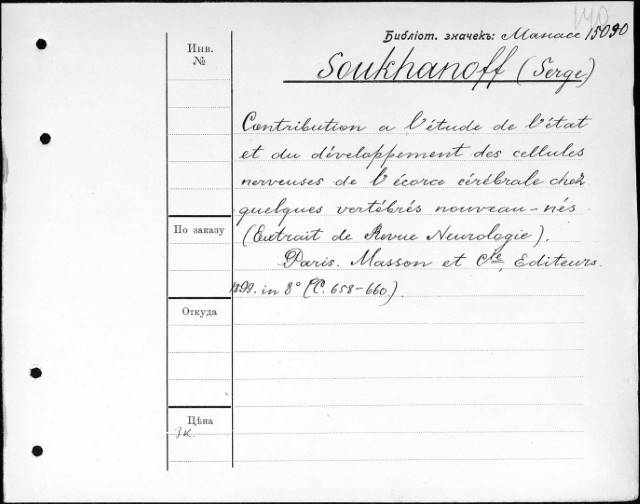 140
Библіот. значекъ: Манасе 15090
Инв.
№
Soukhanoff (Serge)
Contribution a l'étude de l'état
et du développement des cellules
nerveuses de l'écorce cérébrale chez
quelques vertébrés nouveau-nés
(Extrait de Revue Neurologie).
Paris. Masson et Cie, Editeurs.
1899. in 8° (C. 658-660).
По заказу
Откуда
Цѣна
3к.